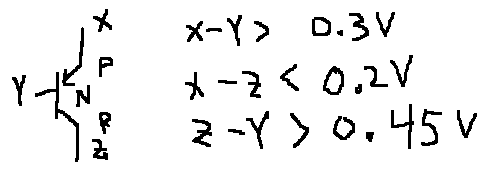 X
Y
P
N
P
Z
X-Y > 0.3V
X-Z < 0.2V
Z-Y > 0.45V